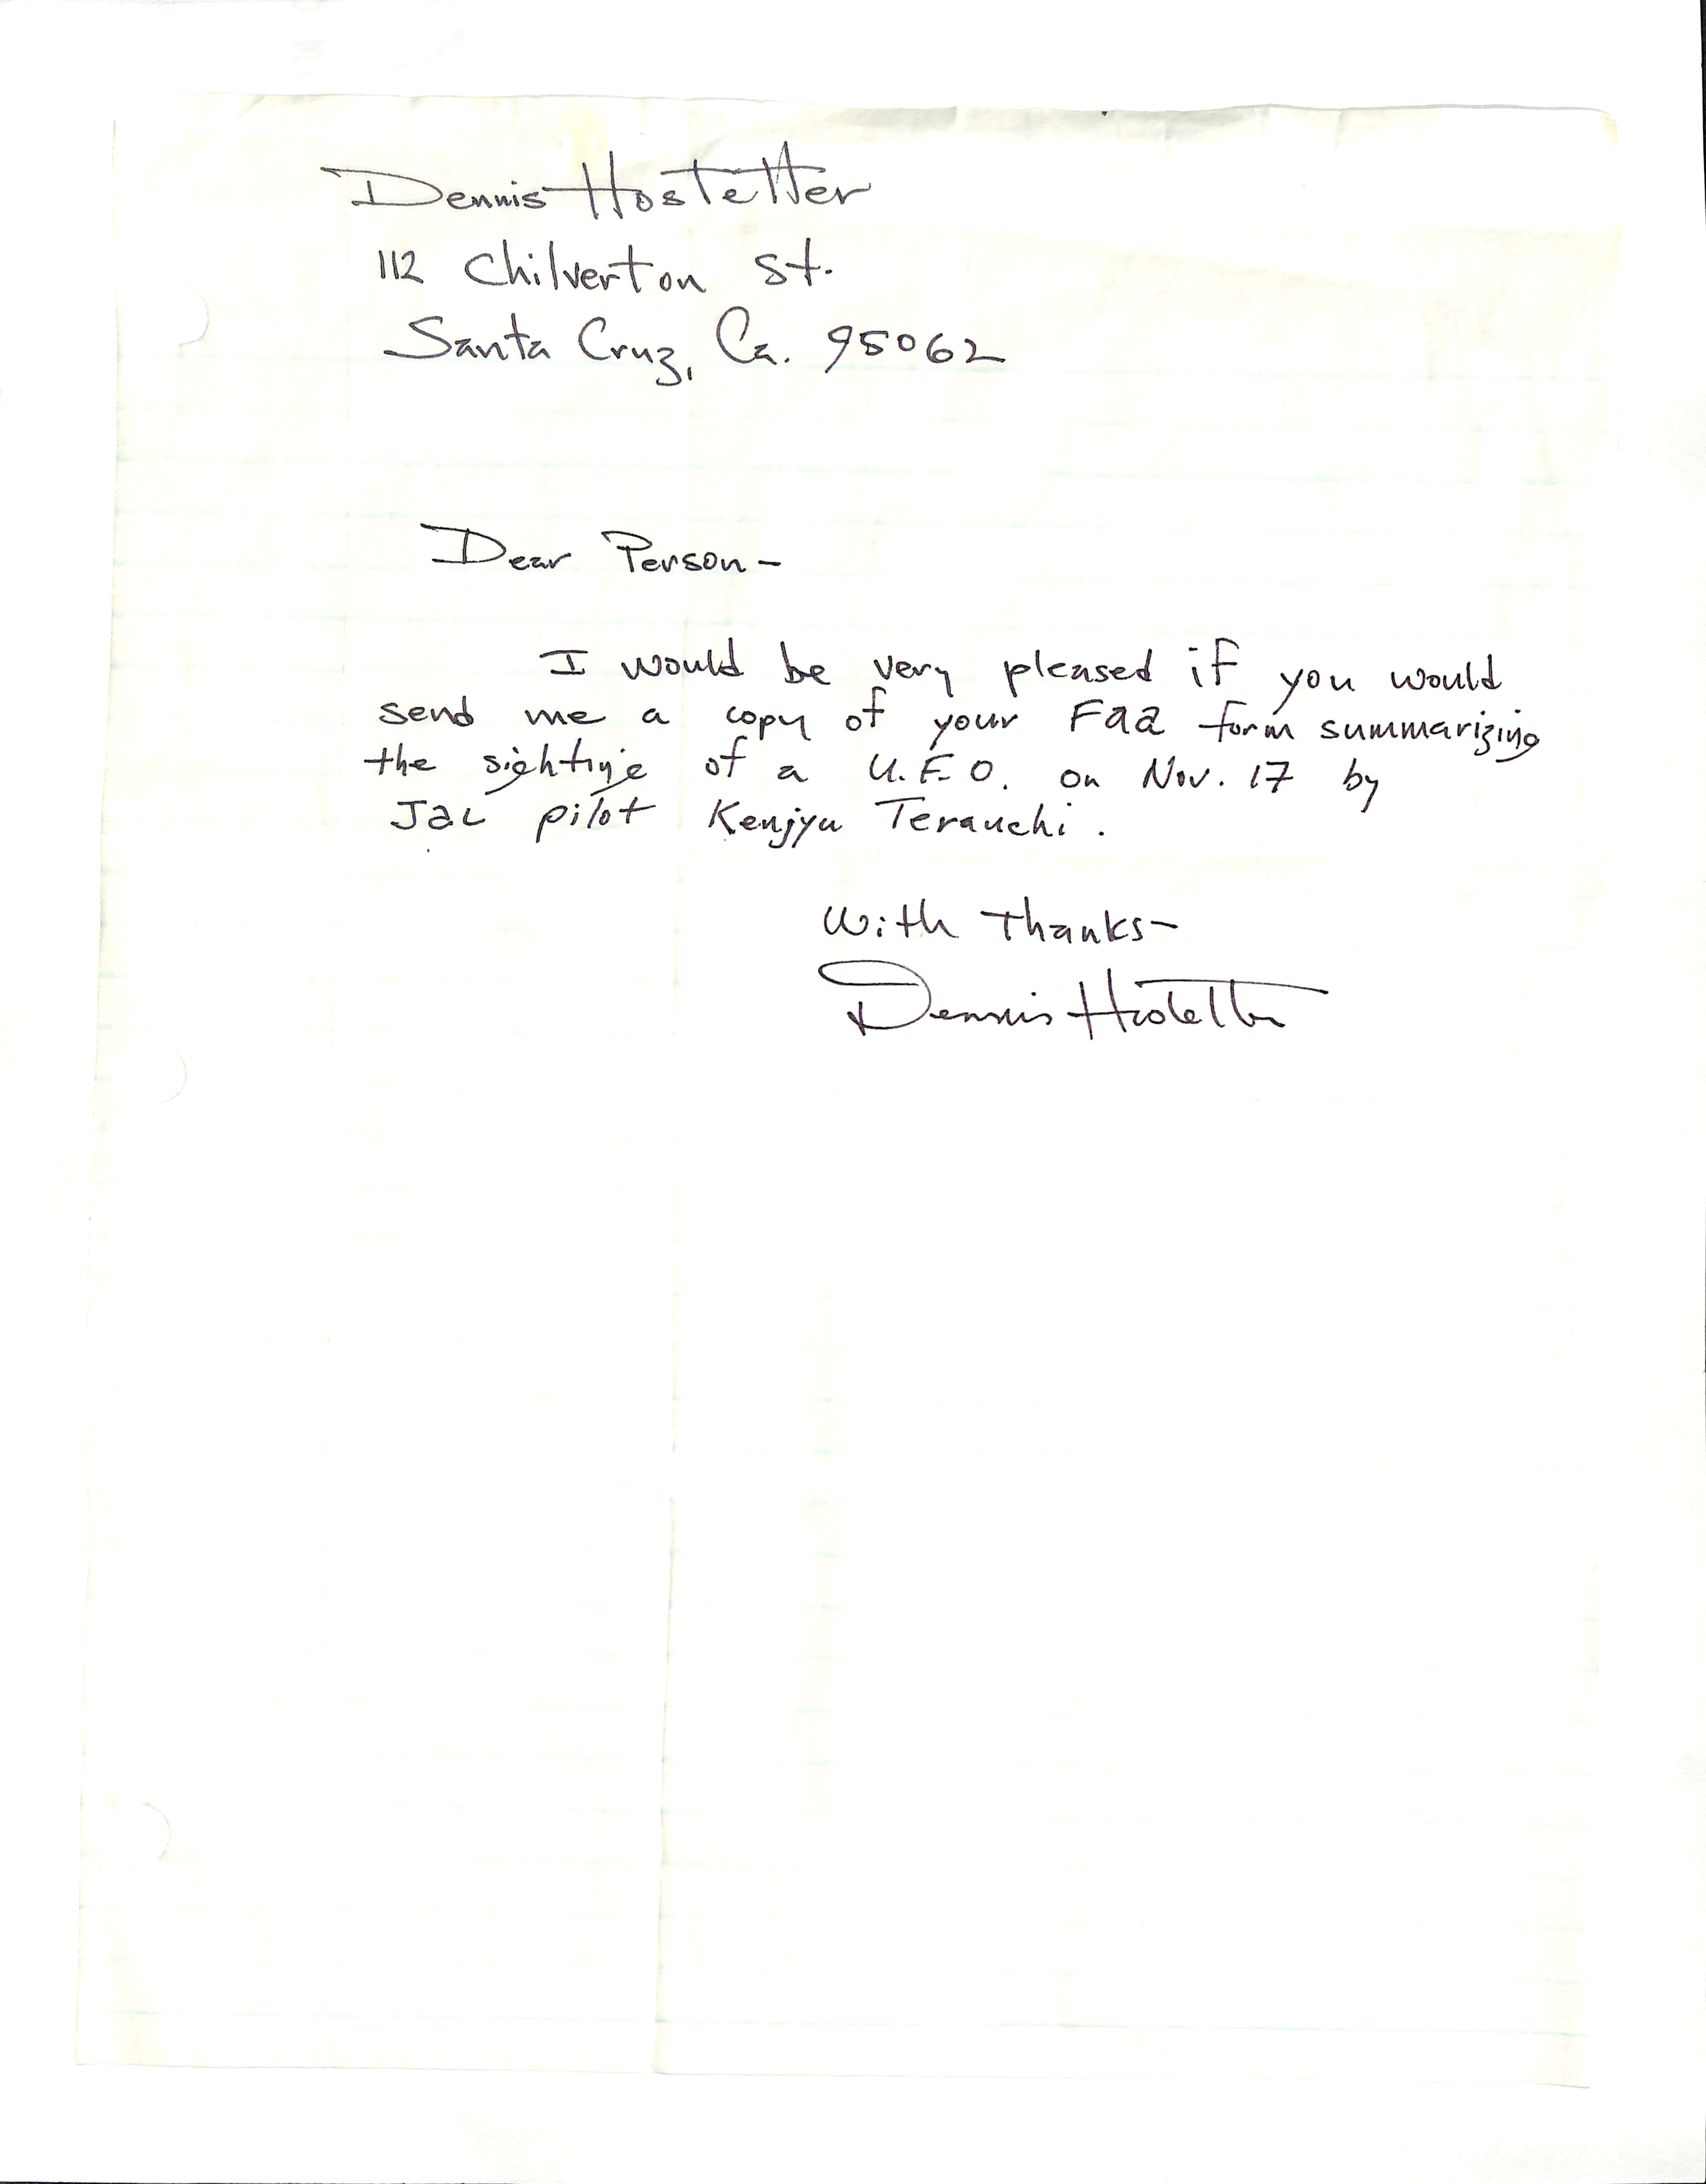 Dennis Hostetter
112 Chilverton St.
Santa Cruz, Ca. 95062
Dear Person-
I would be very pleased if you would
send me a copy of your Faa form summarizing
the sighting of a U.F.O. on Nov. 17 by
Jal pilot Kenjyu Terauchi.
With Thanks-
Dennis Hostetter